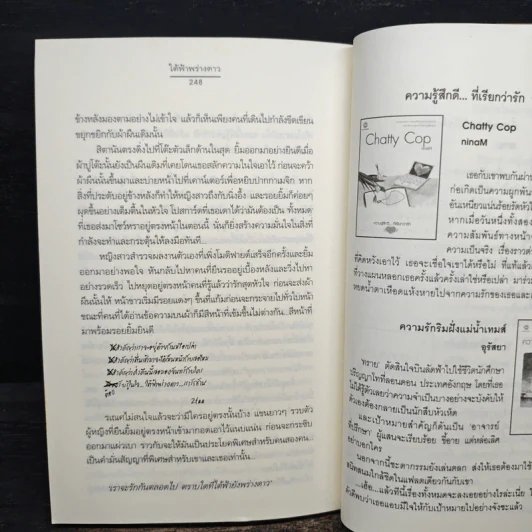 ใต้ฟ้าพร่างดาว
248
ข้างหลังมองตามอย่างไม่เข้าใจ แล้วก็เห็นเพียงคนที่เดินไปกำลังขีดเขียน
ยุกยิกกับผ้าผืนเดิมนั้น
สิตานันตรงดิ่งไปที่โต๊ะตัวเล็กด้านในสุด ยิ้มออกมาอย่างยินดีเมื่อ
ผ้าปูโต๊ะนั้นยังเป็นผืนเดิมที่เคยโดนเธอสลักความในใจเอาไว้ ก่อนจะคว้า
ผ้าผืนนั้นขึ้นมาและบ่ายหน้าไปที่เคาน์เตอร์เพื่อหยิบปากกาเมจิก หาก
สิ่งที่ประดับอยู่ข้างหลังก็ทำให้หญิงสาวถึงกับนิ่งอึ้ง และรอยยิ้มก็ค่อยๆ
ผุดขึ้นอย่างเต็มตื้นในหัวใจ โปสการ์ดที่เธอเดาได้ว่ามันต้องเป็น ทั้งหมด
ที่เธอส่งมาโชว์หราอยู่ตรงหน้าในตอนนี้ นั่นก็ยิ่งสร้างความมั่นใจในสิ่งที่
กำลังจะทำและกระตุ้นให้ลงมือทันที...
หญิงสาวสำรวจผลงานตัวเองที่เพิ่งโมดิฟายด์เสร็จอีกครั้งและยิ้ม
ออกมาอย่างพอใจ หันกลับไปหาคนที่ยืนรออยู่เบื้องหลังและวิ่งไปหา
อย่างรวดเร็ว ไปหยุดอยู่ตรงหน้าคนที่รู้แล้วว่ารักสุดหัวใจ ก่อนจะส่งผ้า
ผืนนั้นให้ หน้าขาวเริ่มมีรอยแดงๆ ขึ้นที่แก้มก่อนจะกระจายไปทั่วใบหน้า
ขณะที่คนที่ได้อ่านข้อความบนผ้าก็มีสีหน้าที่เข้มขึ้นไม่ต่างกัน...สีหน้าที่
มาพร้อมรอยยิ้มยินดี
รณคไม่สนใจแล้วจะว่ามีใครอยู่ตรงนั้นบ้าง แขนยาวๆ รวบตัว
ผู้หญิงที่ยืนยิ้มอยู่ตรงหน้าเข้ามากอดเอาไว้แนบแน่น ก่อนจะกระซิบ
ออกมาแผ่วเบา ราวกับจะให้มันเป็นประโยคพิเศษสำหรับคนสองคน...
เป็นคำมั่นสัญญาที่พิเศษสำหรับเขาและเธอเท่านั้น...
'เราจะรักกันตลอดไป ตราบใดที่ใต้ฟ้ายังพร่างดาว'
ความรู้สึกดี... ที่เรียกว่ารัก
Chatty Cop
Chatty Cop
ninaM
เธอกับเขาพบกันผ่า
ก่อเกิดเป็นความผูกพัน
อันเหนียวแน่นร้อยรัดหัวใ
หากเมื่อวันหนึ่งทั้งสอง
ความสัมพันธ์ทางหน้าจ
ความเป็นจริง เรื่องราวต่า
ที่คิดหวังเอาไว้ เธอจะเชื่อใจเขาได้หรือไม่ ที่แท้แล้วเ
ความรักริมฝั่งแม่น้ำเทมส์
อุรัสยา
'ทราย' ตัดสินใจบินลัดฟ้าไปใช้ชีวิตนักศึกษา
ปริญญาโทที่ลอนดอน ประเทศอังกฤษ โดยที่เธอ
ไม่ได้รู้ตัวเลยว่าความจำเป็นบางอย่างจะบังคับให้
ตัวเองต้องกลายเป็นนักสืบหัวเห็ด
และเป้าหมายสำคัญก็ดันเป็น 'อาจารย์
ที่ปรึกษา' ผู้แสนจะเรียบร้อย ขี้อาย แต่หล่อเลิศ
นอกจากนี้ชะตากรรมยังเล่นตลก ส่งให้เธอต้องมาใช้
ชิดสนมใกล้ชิดในแฟลตเดียวกันกับเขา
...เธอ...แล้วทีนี้เรื่องทั้งหมดจะลงเอยอย่างไรล่ะเนี่ย